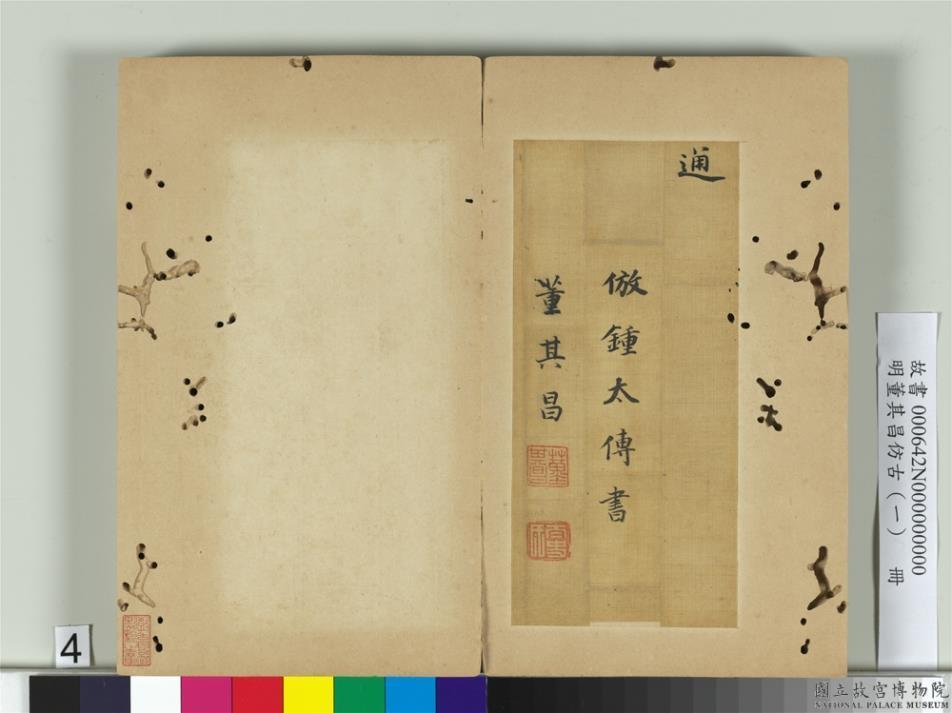 通
倣鍾太傅書
董其昌
故書 000642N000000000
明董其昌仿古（一） 冊
4
國立故宮博物院
NATIONAL PALACE MUSEUM